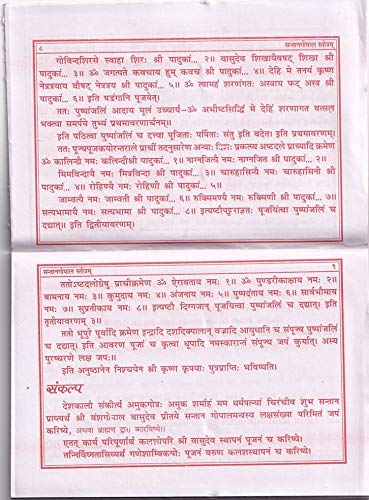 ८ सन्तानगोपाल स्तोत्रम्
गोविन्दशिरसे स्वाहा शिरः श्री पादुकां... २॥ वासुदेव शिखायैवषट् शिखा श्री
पादुकां... ३॥ ॐ जगत्पते कवचाय हुम् कवचं श्री पादुकां... ४॥ देहि मे तनयं कृष्ण
नेत्रत्रयाय वौषट् नेत्रत्रय श्री पादुकां... ५॥ ॐ त्वामहं शरणंगतः अस्त्राय फट् अस्त्र श्री
पादुकां... ६॥ इति षडंगानि पूजयेत्।
ततः पुष्पांजलिं आदाय मूलं उच्चार्य-ॐ अभीष्टसिद्धिं मे देहि शरणागत वत्सल
भक्त्या समर्पये तुभ्यं प्रथमावरणार्चनम्॥
इति पठित्वा पुष्पांजलिं च दत्त्वा पूजिताः पर्पिताः संतु इति वदेत। इति प्रथमावरणम्।
ततः पूज्यपूजकयोरन्तराले प्राचीं तदनुसारेण अन्याः दिशः प्रकल्प्य अष्टदले प्राच्यादि क्रमेण
ॐ कालिन्दी नमः कलिन्दीश्री पादुकां... १॥ नाग्नजित्यै नमः नाग्नजित श्री पादुकां... २॥
मित्रविन्दायै नमः मित्रविन्दा श्री पादुकां... ३॥ चारुहासिन्यै नमः चारुहासिनी श्री
पादुकां... ४॥ रोहिण्यै नमः रोहिणी श्री पादुकां... ५॥
जाम्वत्यै नमः जाम्वती श्री पादुकां... ६॥ रुक्मिमण्यै नमः रुक्मिणी श्री पादुकां... ७॥
सत्यभामायै नमः सत्यभामा श्री पादुकां... ८॥ पूजयित्वा पुष्पांजलिं च
दद्यात्॥ इति द्वितीयावरणम्।
सन्तानगोपाल स्तोत्रम् ९
ततोऽष्टदलाग्रेषु प्राचीक्रमेण ॐ ऐरावताय नमः १॥ ॐ पुण्डरीकाक्षाय नमः २॥
वामनाय नमः ३॥ कुमुदाय नमः ४॥ अंजनाय नमः ५॥ पुष्पदंताय नमः ६॥ सार्वभौमाय
नमः ७॥ सुप्रतीकाय नमः ८॥ इत्यष्टौ दिग्गजान् पूजयित्वा पुष्पांजलिं च दद्यात्। इति
तृतीयावरणम् ३॥
ततो भूपुरे पूर्वादि क्रमेण इन्द्रादि दशदिक्पालान् वज्रादि आयुधानि च संपूज्य पुष्पाञ्जलिं
च दद्यात्। इति आवरण पूजां च कृत्वा धूपादि नमस्कारान्तं संपूज्य जपं कुर्यात्। अस्य
पुरश्चरणे लक्ष जपः॥
इति अनुष्ठानेन निश्चयेन श्री कृष्ण कृपयाः पुत्रप्राप्तिः भविष्यति।
संकल्प
देशकालो संकीर्त्य अमुकगोत्रः अमुक शर्माहं मम धर्मपत्न्यां चिरंजीव शुभ सन्तान
प्राप्त्यर्थं श्री वंशगोपाल वासुदेव प्रीतये सन्तान गोपालमन्त्रस्य लक्षसंख्या परिमितं जपं
करिष्ये, अथवा ब्राह्मण द्वारा कारयिष्ये॥
एतत् कार्य परिपूर्णार्थं कलशोपरि श्री वासुदेव स्थापनं पूजनं च करिष्ये।
तन्निर्विघ्नतासिध्यर्थं गणेशाम्बिकयोः पूजनं वरुण कलशस्थापनं च करिष्ये।